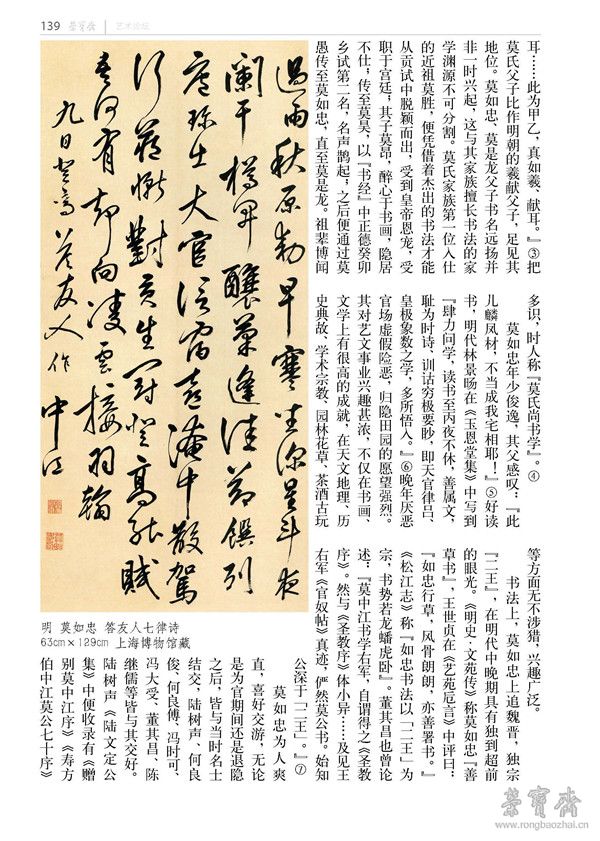 139 荣宝斋 艺术论坛
耳……此为甲乙，真如羲、献耳。』③把
莫氏父子比作明朝的羲献父子，足见其
地位。莫如忠、莫是龙父子书名远扬并
非一时兴起，这与其家族擅长书法的家
学渊源不可分割。莫氏家族第一位入仕
的近祖莫胜，便凭借着杰出的书法才能
从贡试中脱颖而出，受到皇帝恩宠，受
职于宫廷；其子莫昂，醉心于书画，隐居
不仕；传至莫昊，以『书经』中正德癸卯
乡试第二名，名声鹊起；之后便通过莫
愚传至莫如忠，直至莫是龙。祖辈博闻
多识，时人称『莫氏尚书学』。④
莫如忠年少俊逸，其父感叹：『此
儿麟凤材，不当成我宅相耶！』⑤好读
书，明代林景旸在《玉恩堂集》中写到
『肆力问学，读书至丙夜不休，善属文，
耻为时诗，训诂穷极要眇，即天官律吕、
皇极象数之学，多所悟人。』⑥晚年厌恶
官场虚假险恶，归隐田园的愿望强烈。
其对艺文事业兴趣甚浓，不仅在书画、
文学上有很高的成就，在天文地理、历
史典故、学术宗教、园林花草、茶酒古玩
等方面无不涉猎，兴趣广泛。
书法上，莫如忠上追魏晋，独宗
『二王』，在明代中晚期具有独到超前
的眼光。《明史·文苑传》称莫如忠『善
草书』，王世贞在《艺苑卮言》中评曰：
『如忠行草，风骨朗朗，亦善署书。』
《松江志》称『如忠书法以『二王』为
宗，书势若龙蟠虎卧』。董其昌也曾论
述：『莫中江书学右军，自谓得之《圣教
序》。然与《圣教序》体小异……及见王
右军《官奴帖》真迹，俨然莫公书。始知
公深于『二王』。』⑦
莫如忠为人爽
直，喜好交游，无论
是为官期间还是退隐
之后，皆与当时名士
结交，陆树声、何良
俊、何良傅、冯时可、
冯大受、董其昌、陈
继儒等皆与其交好。
陆树声《陆文定公
集》中便收录有《赠
别莫中江序》《寿方
伯中江莫公七十序》
過雨秋原勒早寒坐深星斗夜
闌干樽中釀菊逢佳節饌列
珍出大官信宿喜淹中散駕
行藏慚對賈生登高能賦
吾何有却向凌雲接羽翰
九日登高答友人作 中江
明 莫如忠 答友人七律诗
63cm×129cm 上海博物馆藏
荣宝斋
www.rongbaozhai.cn